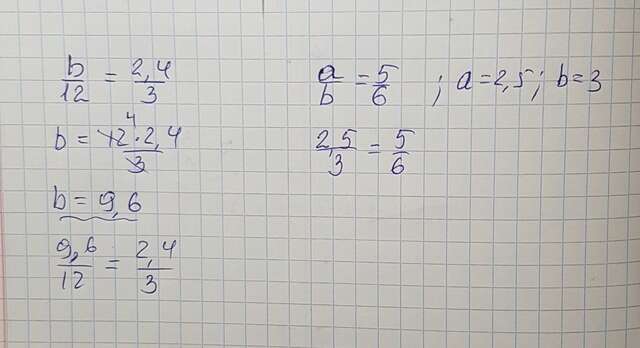 b/12 = 2,4/3
b = 12 · 2,4/3
4
b = 9,6
9,6/12 = 2,4/3
a/b = 5/6 ; a = 2,5 ; b = 3
2,5/3 = 5/6